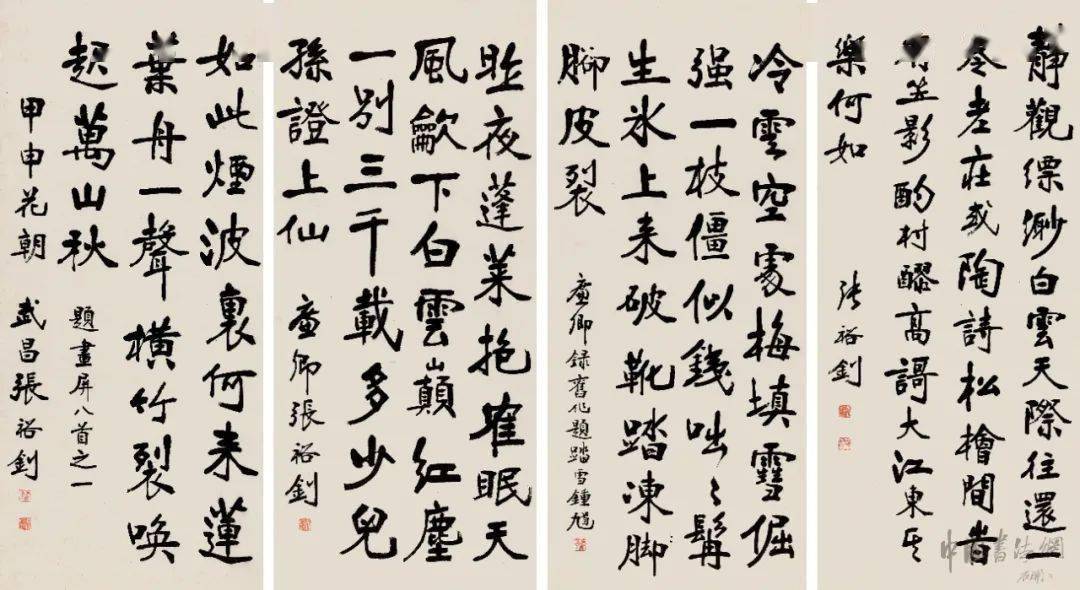 靜觀縹緲白雲天際往還一
老莊或陶詩松檜間
笠影酌村醪高謌大江東其
樂何如
張裕釗
冷雲空處梅填雪倔
强一枝僵似鐵咄々髯
生氷上来破靴踏凍脚
脚皮裂
廉卿録舊作題踏雪鍾馗
昨夜蓬莱抱隺眠天
風歙下白雲巔紅塵
一别三千載多少兒
孫證上仙
廉卿張裕釗
如此煙波裏何来蓮
葉舟一聲横竹裂唤
起萬山秋
題畫屏八首之一
甲申花朝 武昌張裕釗